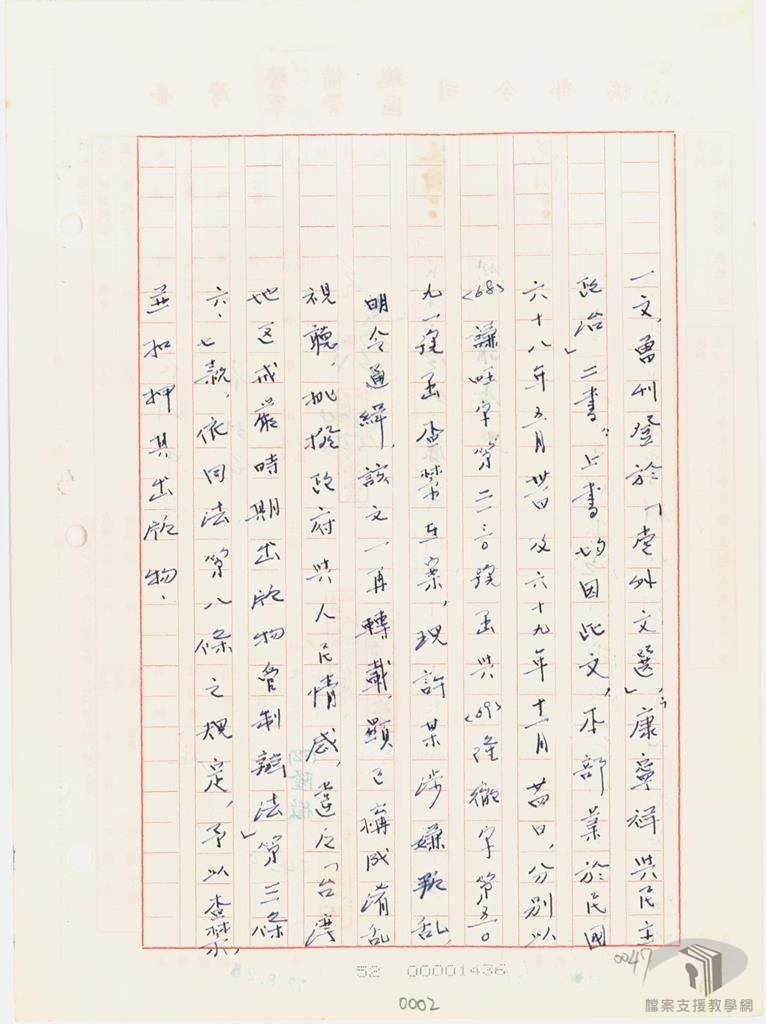 一文，曾刊登於「党外文選」、「康寧祥與民主
政治」二書，上書均因此文，本部業於民國
六十八年五月卅日及六十九年十一月廿四日，分別以
(68)謙旺字第二一三〇號函與(69)隆徹字第五〇
九一號函查禁在案，現許某涉嫌叛乱，
明令通緝，該文一再轉載，顯已構成淆乱
視聽，挑撥政府與人民情感，違反「台灣
地区戒嚴時期出版物管制辦法」第三條
六、七款，依同法第八條之規定，予以查禁，
並扣押其出版物、
0047
52 00001436
0002
檔案支援教學網